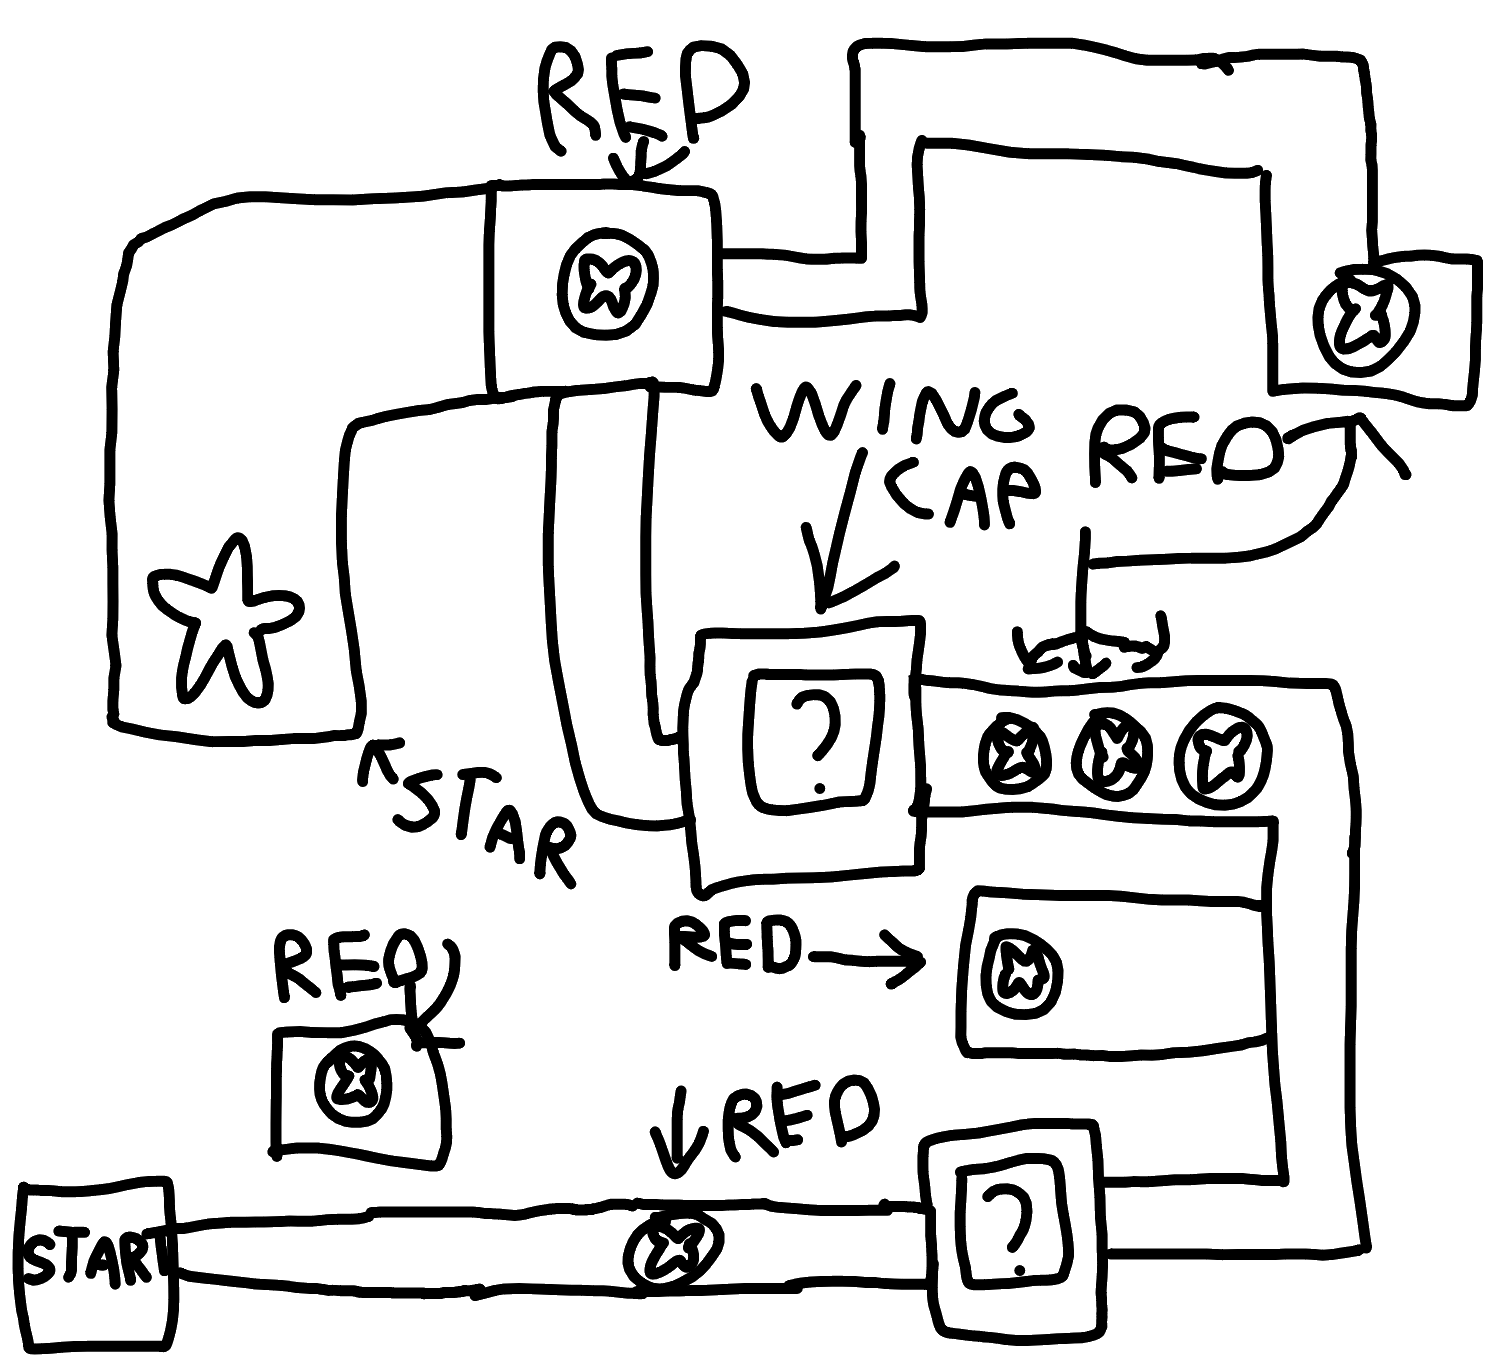 RED
WING
CAP
RED
?
STAR
RED
RED
RED
?
START